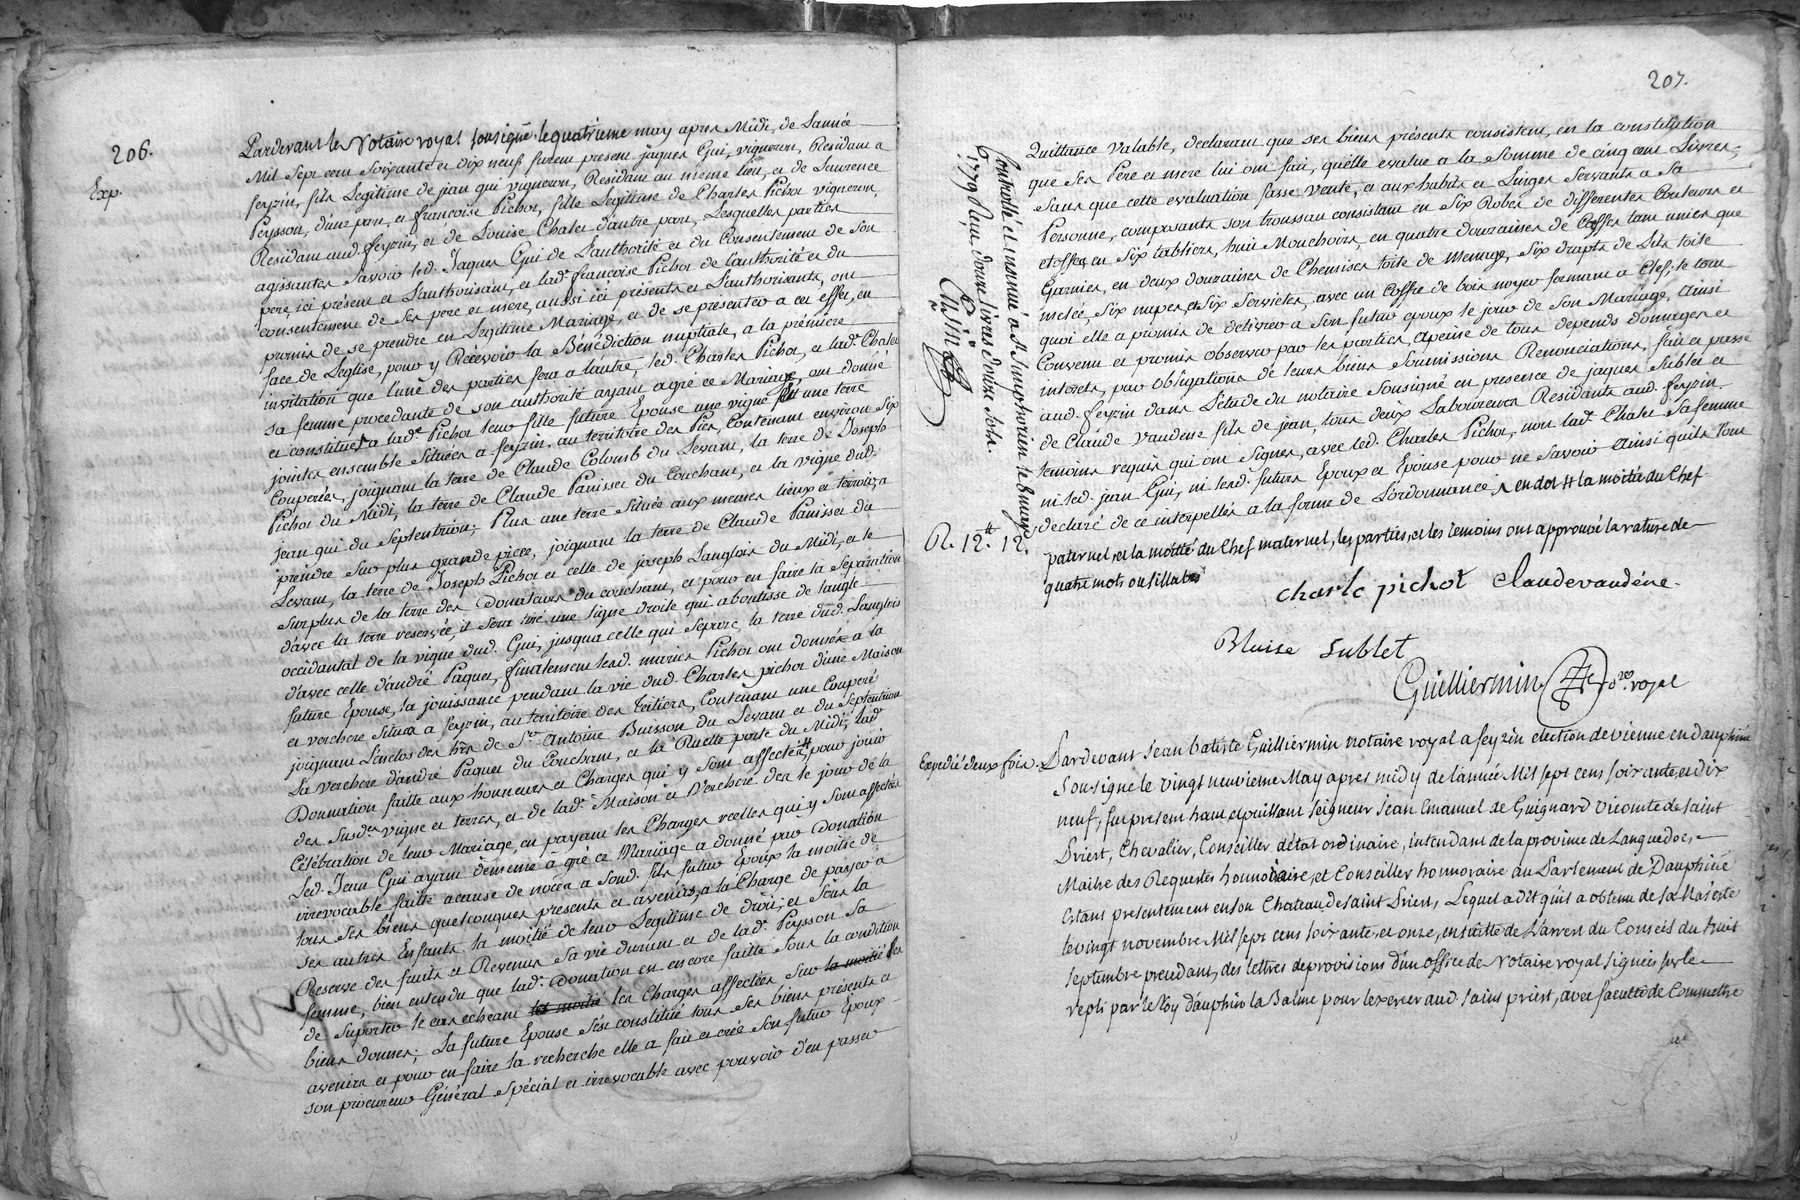 206.
Exp.
Pardevant le Notaire royal sousigné le quatrieme may apres Midi, de Lannée
Mil Sept cent Soixante et dix neuf furent present jaques Gui, vigneron, Residant a
feyzin, fils Legitime de jean qui vigneron, Residant au même lieu, et de Laurence
Peysson, d'une part, et françoise Pichot, fille Legitime de Charles Pichot vigneron,
Residant aud. feyzin, et de Louise Chalet d'autre part, Lesquelles parties
agissantes Savoir led. Jaques Gui de L'authorité et du Consentement de son
pere, ici présent et L'authorisant, et lad.e françoise Pichot de l'authorité et du
consentement de ses pere et mere, aussi ici présents et L'authorisants, ont
promis de se prendre en Legitime Mariage, et de se presenter a cet effet, en
face de L'eglise, pour y Recevoir la Bénédiction nuptiale, a la prémiere
invitation que l'une des parties fera a l'autre, led. Charles Pichot, et lad.e Chalet
sa femme procedante de son authorité ayant agréé ce Mariage, ont donné
et constitué a lad.e Pichot leur fille future Epouse une vigne et une terre
jointes ensemble Situées a feyzin, au territoire des Pies, Contenant environ Six
Couperées, joignant la terre de Claude Colomb du Levant, la terre de Joseph
Pichot du Midi, la terre de Claude Panisset du Couchant, et la vigne dud.
jean qui du Septentrion; Plus une terre Située aux memes lieux et terroir, a
prendre sur plus grande piece, joignant la terre de Claude Panisset du
Levant, la terre de Joseph Pichot et celle de joseph Langlois du Midi, et le
surplus de la terre des Donateurs du couchant, et pour en faire la Separation
d'avec la terre reservée, il sera tiré une ligne droite qui aboutisse de langle
occidantal de la vigne dud. Gui, jusqua celle qui Separe, la terre dud. Langlois
d'avec celle d'andré Paquet, finalement lesd. mariés Pichot ont donné a la
future Epouse, la jouissance pendant la vie dud. Charles pichot d'une Maison
et verchere Situés a feyzin, au territoire des Tritiers, Contenant une Couperé
joignant L'enclos des hrs de S.r Antoine Buisson du Levant et du Septentrion
La verchere d'andré Paquet du Couchant, et la Ruette porte du Midi, lad.e
Donnation faitte aux honneurs et Charges qui y sont affectées, pour jouir
des Susd.es vigne et terres, et de lad.e Maison et Verchere des le jour de la
Célébration de leur Mariage, en payant les Charges réelles qui y sont affectées
Led. Jean Gui ayant demême à gré ce Mariage a donné par Donation
irrevocable faitte acause de noces a Sond. fils futur Epoux la moitié de
tous Ses biens quelconques presents et avenirs, a la Charge de payer a
ses autres Enfants la moitié de leur Legitime de droit; et Sous la
Reserve des fruits et Revenus Sa vie durant et de lad.e Peysson Sa
femme, bien entendu que lad.e Donation est encore faitte Sous la condition
de Suporter le cas echeant les moitié les Charges affectées Sur la moitié des
biens donnés; La future Epouse S'est constitué tous Ses biens présents et
avenirs et pour en faire la recherche elle a fait et créé son futur Epoux
son procureur Général Spécial et irrevocable avec pouvoir d'en passer
207.
Quittance valable, declarant que ses biens présents consistent, en la constitution
que Ses Pere et mere lui ont fait, quelle evalue a la Somme de cinq cent Livres,
Sans que cette evaluation fasse vente, et aux habits et Linges Servants a Sa
Personne, composants son troussau consistant en Six Robes de differentes Couleurs et
etoffes, en Six tabliers, huit Mouchoirs, en quatre douzaines de Coeffes tant unies que
Garnies, en deux douzaines de Chemises toile de menage, Six draps de Lits toile
meslée, Six napes, et Six Serviettes, avec un coffre de bois noyer fermant a clef; le tout
quoi elle a promis de delivrer a Son futur epoux le jour de Son Mariage, Ainsi
Convenu et promis observer par les parties, Apeine de tous dépends domages et
interets, par obligations de leurs biens Soumissions Renonciations, fait et passé
aud. feyzin dans L'étude du notaire Sousigné en presence de jaques Sublet et
de Claude Vaudene fils de jean, tous deux Laboureurs Residants aud. feyzin
temoins requis qui ont Signés, avec led. Charles Pichot, non lad.e Chalet Sa femme
ni led. jean Gui, ni lesd. futurs Epoux et Epouse pour ne Savoir Ainsi quils l'ont
declaré de ce interpellés a la forme de L'ordonnance, en dot # la moitié du Chef
paternel, et la moitié du Chef maternel, les parties, et les temoins ont approuvé la rature de
quatre mots ou sillabes
charle pichot Claude vaudéne
Blaise Sublet
Guilliermin no.re royal
Controllé et insinué a S.t Simphorin le 8 may
1779 Reçu douze livres douze sols.
R. 12.# 12.s
Expedié deux fois
Pardevant Jean batiste Guilliermin notaire royal a feyzin election de vienne en dauphiné
Sousigné le vingt neuvieme May apres midy de lannée Mil sept cens soixante, et dix
neuf, fut present haut, et puissant Seigneur Jean Emanuel de Guignard vicomte de saint
Priest, Chevalier, Conseiller d'état ordinaire, intendant de la province de Languedoc,
Maitre des Requestes honnoraire, et Conseiller honnoraire au Parlement de Dauphiné
Estant presentement en son Chateau de saint Priest, Lequel a dit qu'il a obtenu de sa Majesté
le vingt novembre Mil sept cens soixante, et onze, ensuitte de L'arrest du Conseil du huit
Septembre precedant, des lettres de provisions d'un office de Notaire royal signées sur le
repli par le Roy dauphin la Balme pour l'exercer aud. saint priest, avec faculté de Commettre